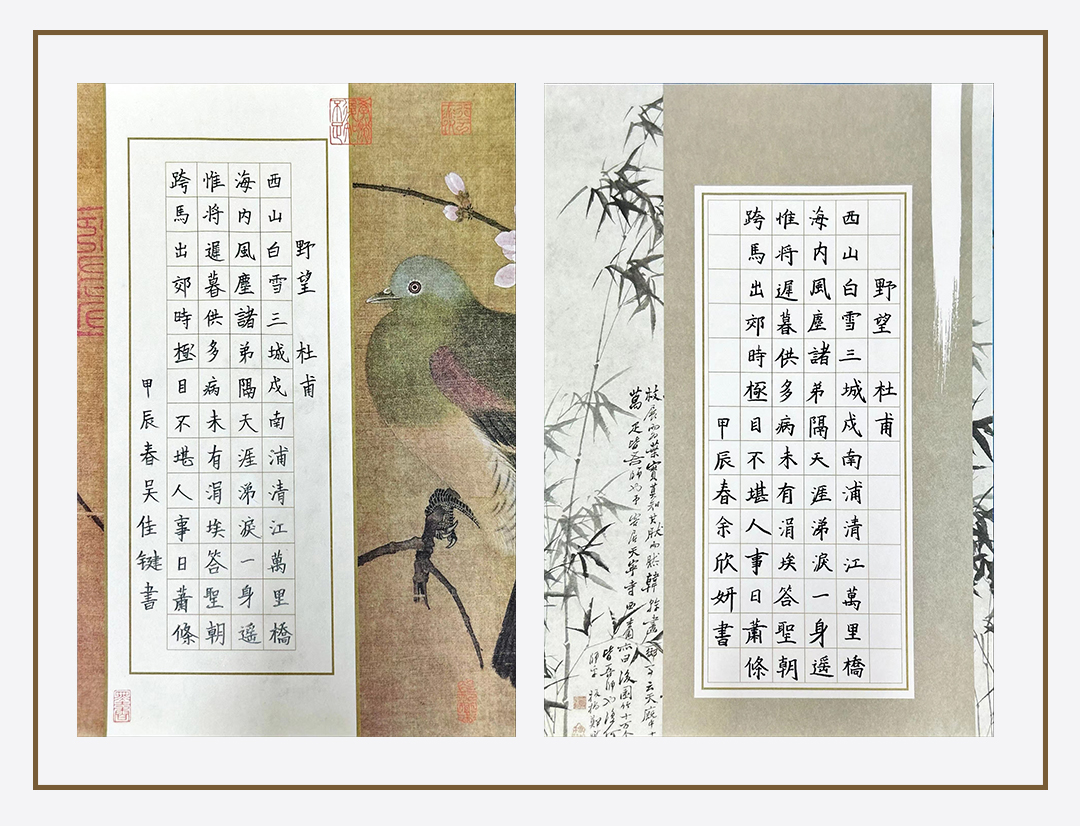 野望 杜甫
西山白雪三城戍南浦清江萬里橋
海内風塵諸弟隔天涯涕淚一身遥
惟將遲暮供多病未有涓埃答聖朝
跨馬出郊時極目不堪人事日蕭條
甲辰春吴佳键書
野望 杜甫
西山白雪三城戍南浦清江萬里橋
海内風塵諸弟隔天涯涕淚一身遥
惟將遲暮供多病未有涓埃答聖朝
跨馬出郊時極目不堪人事日蕭條
甲辰春余欣妍書